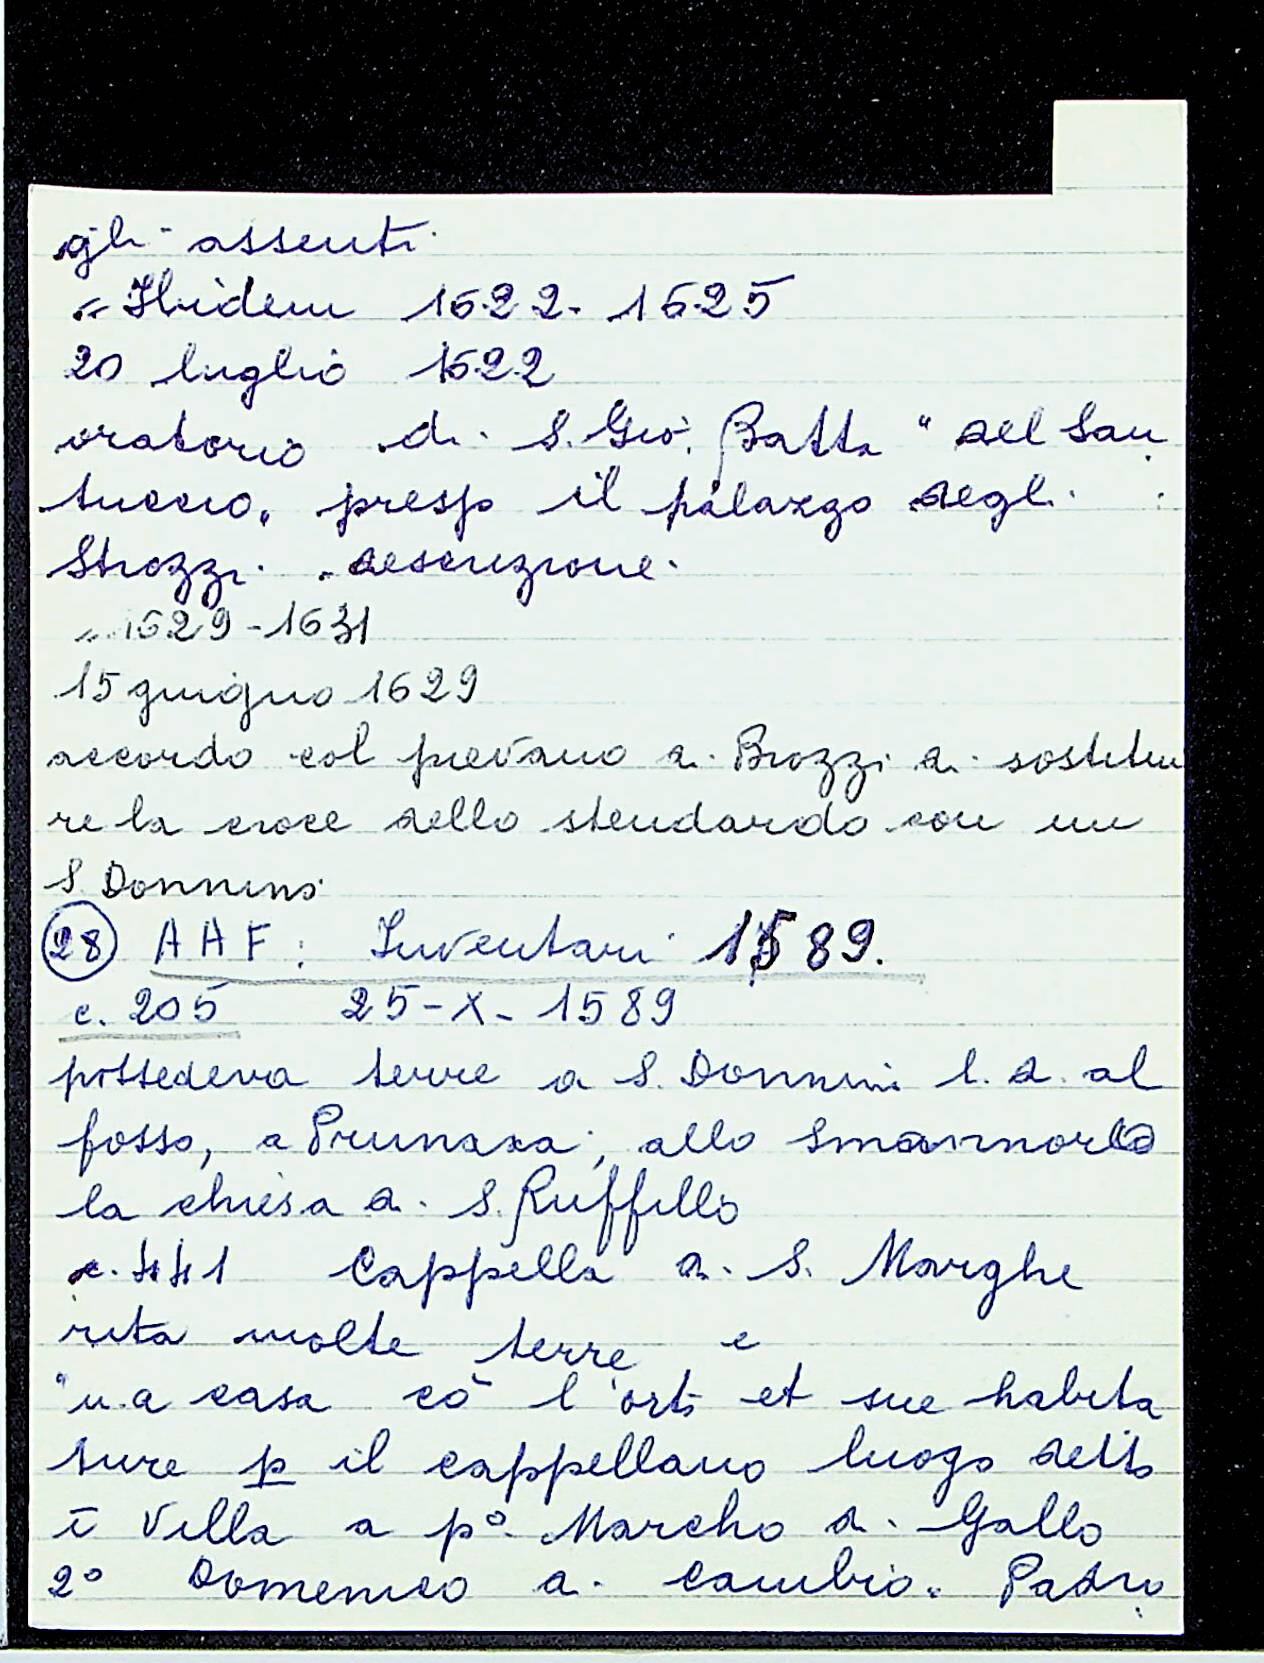 gli assenti.
"Ibidem 1622-1625
20 luglio 1622
oratorio di S. Gio. Batta "del San
tuccio" presso il palazzo degli
Strozzi. descrizione.
" 1629-1631
15 giugno 1629
accordo col pievano di Brozzi di sostitui
re la croce dello stendardo con un
S. Donnino
28 AAF: Inventari 1589.
c. 205 25-X-1589
possedeva terre a S. Donnini l.d. al
fosso, a Prunaia, allo Smannorio
la chiesa di S. Ruffillo
c. 441 Cappella di S. Marghe
rita molte terre e
"u.a casa cō l'orto et sue habita
ture p il cappellano luogo detto
ī Villa a pº Marcho di Gallo
2º Domenico di Cambio. Padro